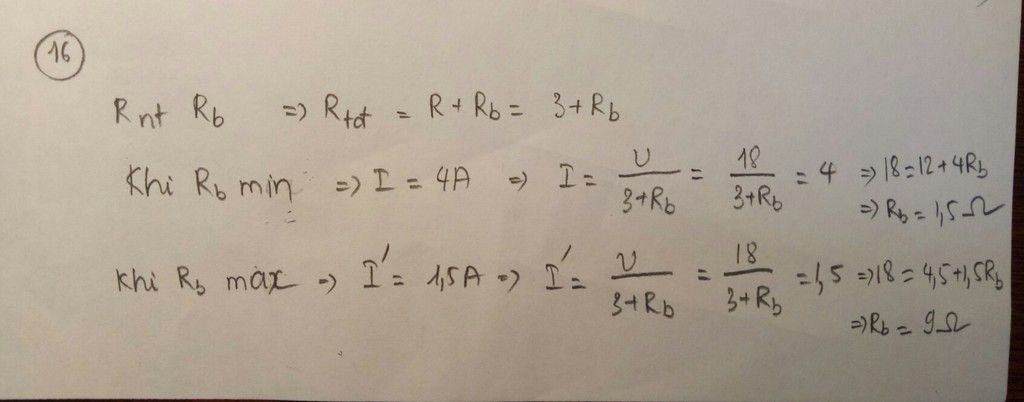 16
R nt Rb => Rtđ = R + Rb = 3 + Rb
Khi Rb min => I = 4A => I = U/(3+Rb) = 18/(3+Rb) = 4 => 18 = 12 + 4Rb
=> Rb = 1,5 Ω
Khi Rb max => I' = 1,5A => I' = U/(3+Rb) = 18/(3+Rb) = 1,5 => 18 = 4,5 + 1,5Rb
=> Rb = 9Ω